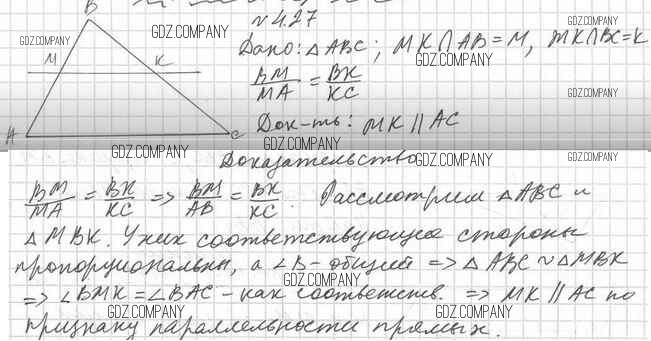 N 4.27
B
GDZ.COMPANY GDZ.COMPANY GDZ.COMPANY
Дано: △ABC; MK∩AB=M, MK∩BC=K
GDZ.COMPANY
M K
BM/MA = BK/KC
GDZ.COMPANY
Док-ть: MK ∥ AC
A C
GDZ.COMPANY
GDZ.COMPANY Доказательство GDZ.COMPANY GDZ.COMPANY
BM/MA = BK/KC => BM/AB = BK/KC. Рассмотрим △ABC и
△MBK. У них соответствующие стороны
пропорциональны, а ∠B - общий => △ABC ~ △MBK
GDZ.COMPANY
=> ∠BMK = ∠BAC - как соответств. => MK ∥ AC по
GDZ.COMPANY GDZ.COMPANY GDZ.COMPANY
признаку параллельности прямых.